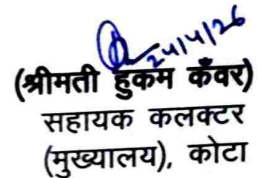 24/4/26
(श्रीमती हुकम कँवर)
सहायक कलक्टर
(मुख्यालय), कोटा